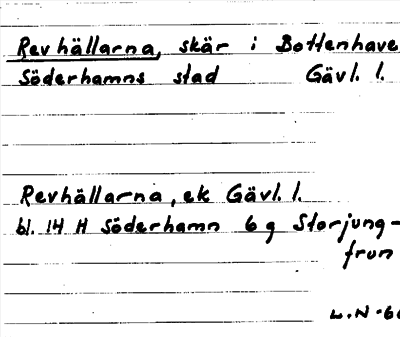 Revhällarna, skär i Bottenhave
Söderhamns stad Gävl. l.
Revhällarna, ek Gävl. l.
bl. 14 H Söderhamn 6 g Storjung-
frun
L.N -60